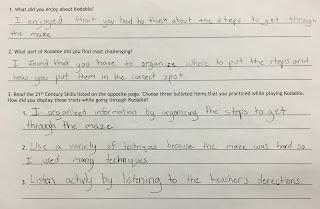 1. What did you enjoy about Kodable?
I enjoyed that you had to think about the steps to get through
the maze
2. What part of Kodable did you find most challenging?
I found that you have to organize where to put the steps and
how you put them in the correct spot
3. Read the 21st Century Skills listed on the opposite page. Choose three bulleted items that you practiced while playing Kodable.
How did you display these traits while going through Kodable?
1. I organised information by organizing the steps to get
through the maze
2. Use a variety of techniques because the maze was hard so
I used many techniques
3. Listen activly by listening to the teacher's derections.